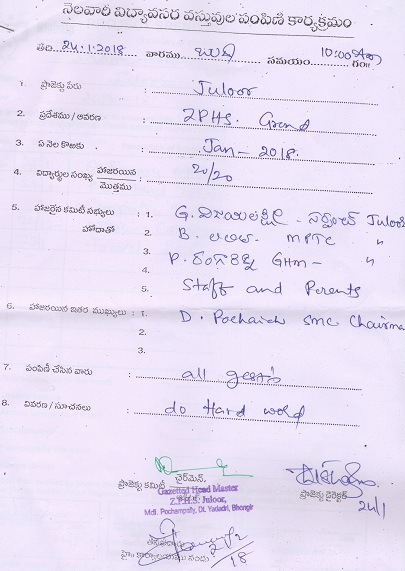 నెలవారి విద్యావసర వస్తువుల పంపిణి కార్యక్రమం
తేది. 24.1.2018 వారము బుధ సమయం 10:00 గం॥
1. ప్రాజెక్టు పేరు : Juloor
2. ప్రదేశము / ఆవరణ : ZPHS. Grond
3. ఏ నెల కొఱకు : Jan - 2018.
4. విద్యార్థుల సంఖ్య హాజరయిన / మొత్తము : 20/20
5. హాజరైన కమిటీ సభ్యులు హోదాతో : 1. G. విజయలక్ష్మి - సర్పంచ్ Juloor
2. B. MPTC "
3. P. రంగారెడ్డి GHM - "
4.
5. Staff and Perents
6. హాజరయిన ఇతర ముఖ్యులు : 1. D. Pochaiah SMC Chairma
2.
3.
7. పంపిణీ చేసిన వారు : all
8. వివరణ / సూచనలు : do Hard
ప్రాజెక్టు కమిటీ చైర్‌మెన్,
ప్రాజెక్టు డైరెక్టర్
24/1
Gazetted Head Master
Z.P.H.S. Juloor,
Mdl. Pochampally, Dt. Yadadri, Bhongir
18